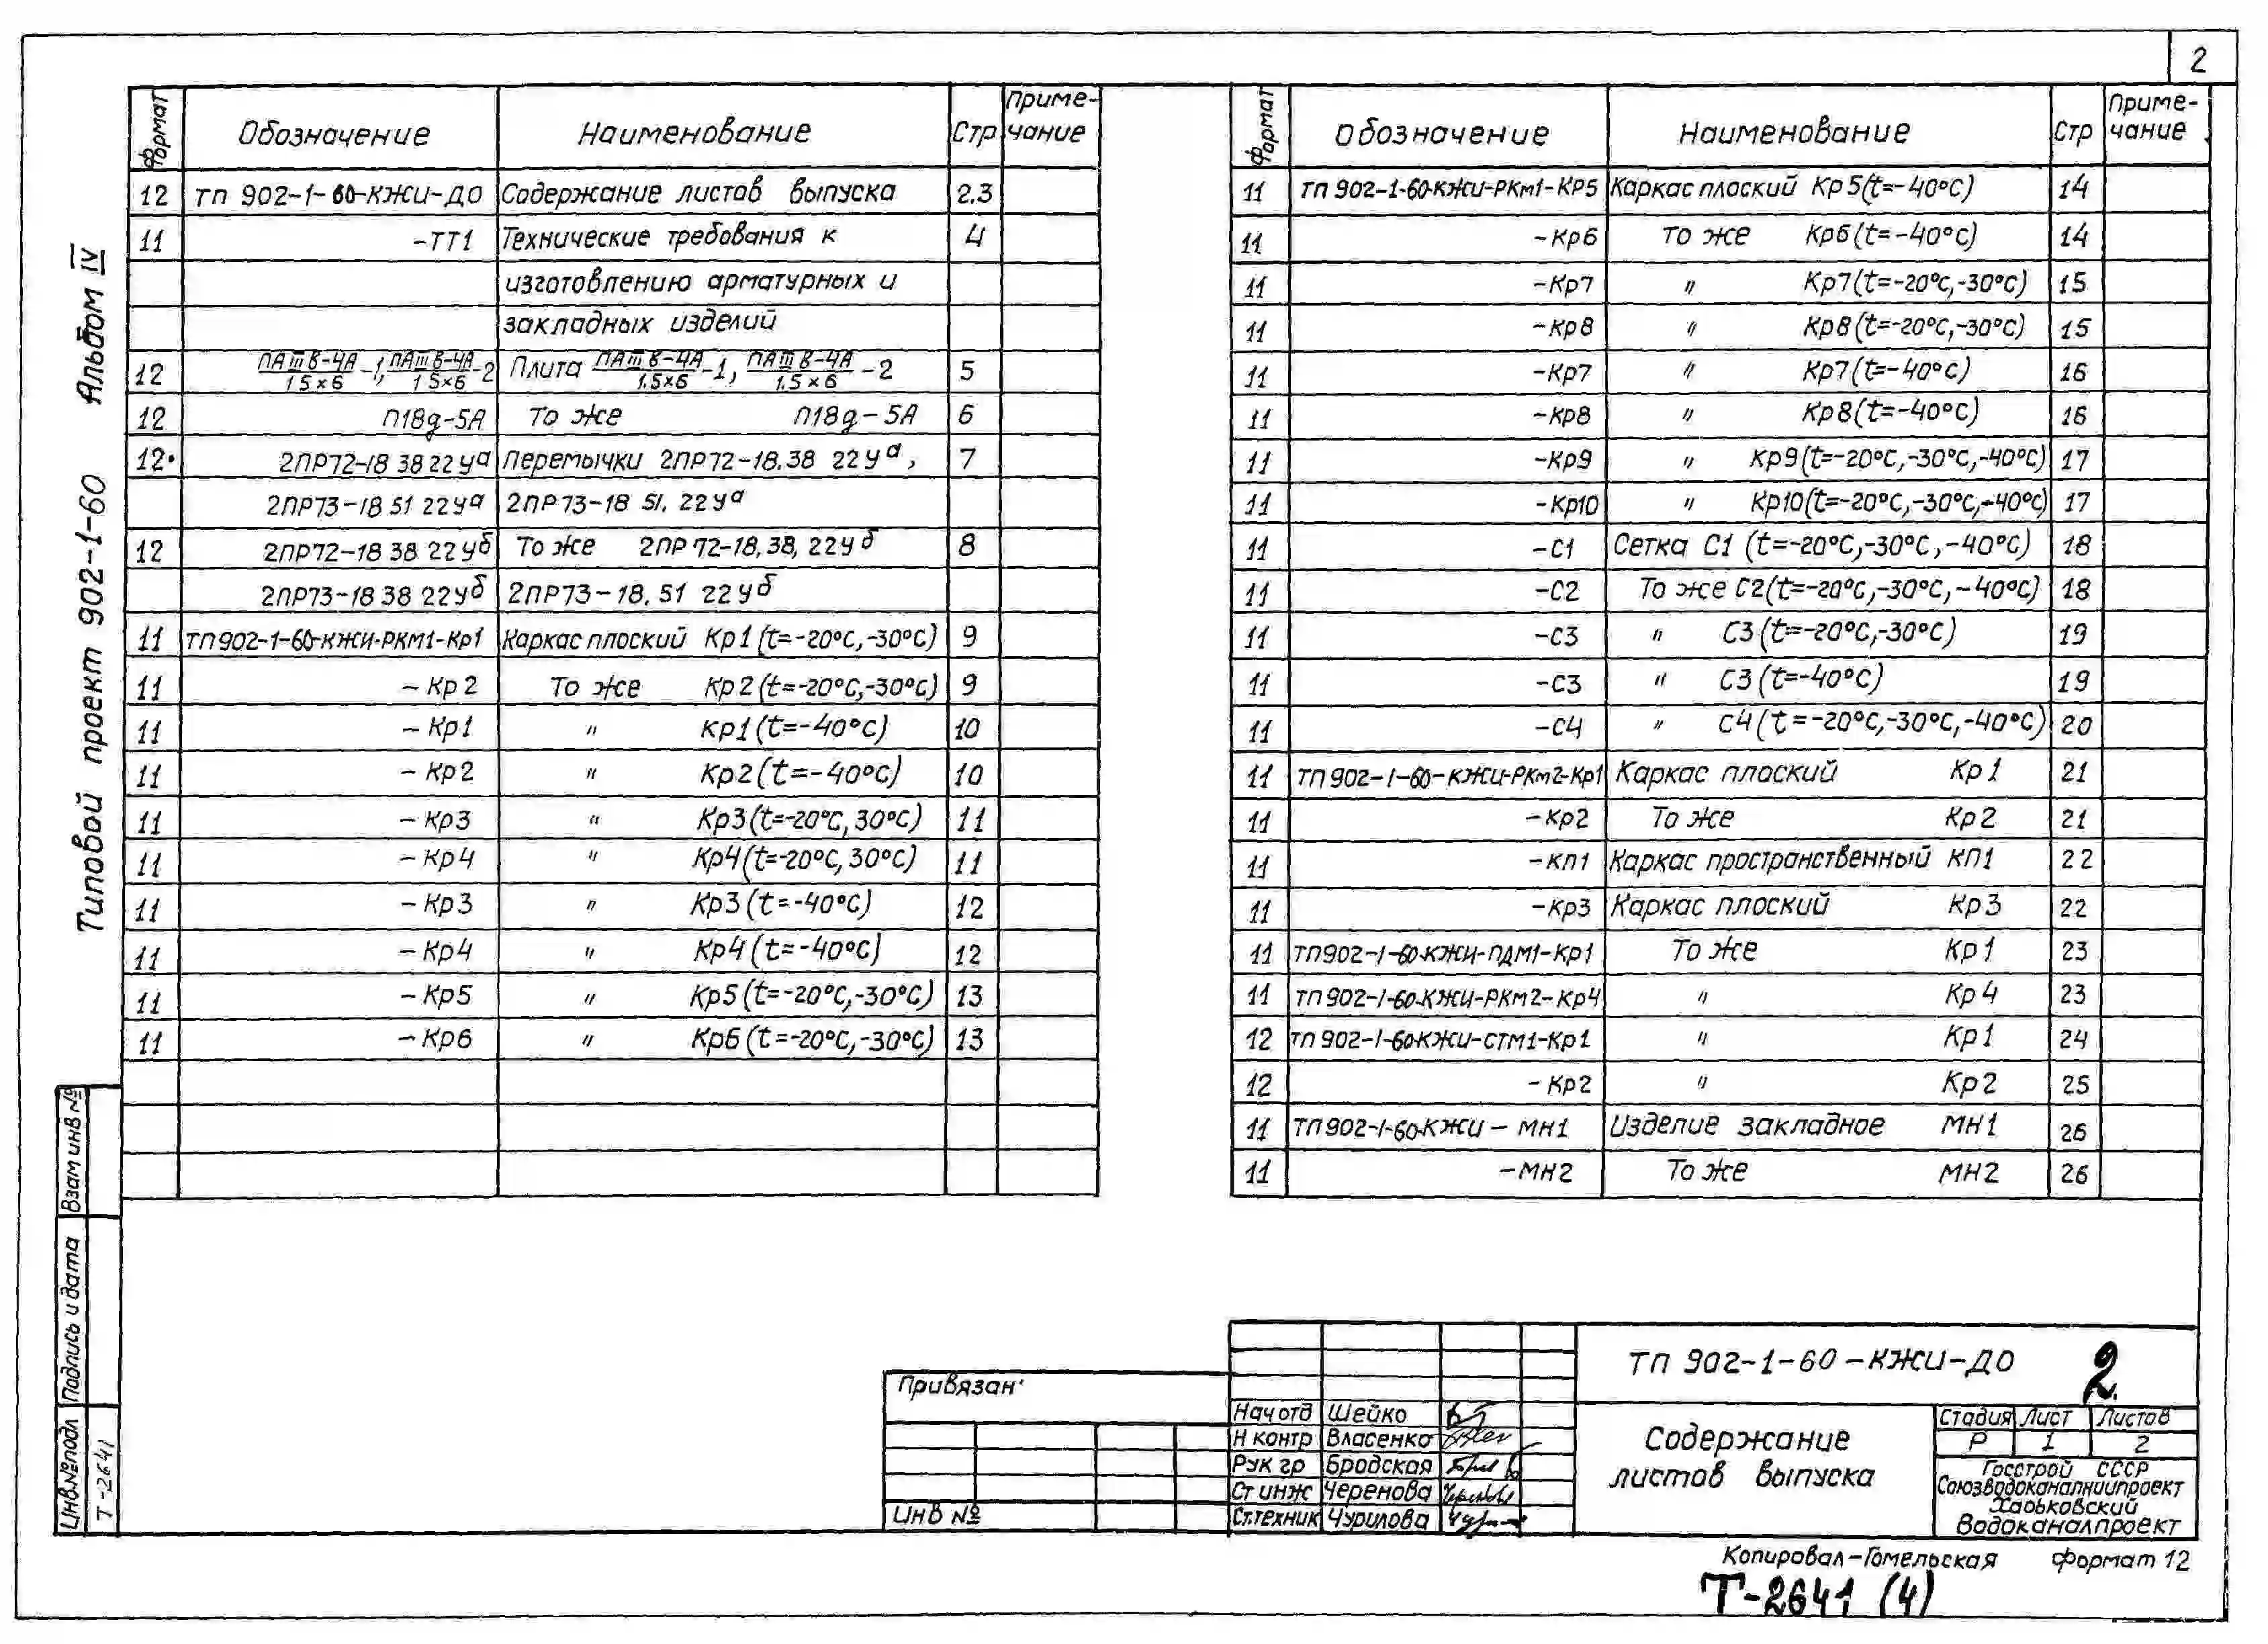 2
Типовой проект 902-1-60 Альбом IV
Формат Обозначение Наименование Стр Приме-чание
12 ТП 902-1-60-КЖИ-ДО Содержание листов выпуска 2,3
11 -ТТ1 Технические требования к 4
изготовлению арматурных и
закладных изделий
12 ПАШВ-4А/1.5х6-1, ПАШВ-4А/1.5х6-2 Плита ПАШВ-4А/1.5х6-1, ПАШВ-4А/1.5х6-2 5
12 П18д-5А То же П18д-5А 6
12 2ПР72-18 38 22Уа Перемычки 2ПР72-18.38 22Уа, 7
2ПР73-18 51 22Уа 2ПР73-18 51. 22Уа
12 2ПР72-18 38 22Уб То же 2ПР72-18,38, 22Уб 8
2ПР73-18 38 22Уб 2ПР73-18. 51 22Уб
11 ТП902-1-60-КЖИ-РКм1-Кр1 Каркас плоский Кр1(t=-20°С,-30°С) 9
11 -Кр2 То же Кр2(t=-20°С,-30°С) 9
11 -Кр1 " Кр1(t=-40°С) 10
11 -Кр2 " Кр2(t=-40°С) 10
11 -Кр3 " Кр3(t=-20°С,30°С) 11
11 -Кр4 " Кр4(t=-20°С,30°С) 11
11 -Кр3 " Кр3(t=-40°С) 12
11 -Кр4 " Кр4(t=-40°С) 12
11 -Кр5 " Кр5(t=-20°С,-30°С) 13
11 -Кр6 " Кр6(t=-20°С,-30°С) 13
Формат Обозначение Наименование Стр Приме-чание
11 ТП 902-1-60-КЖИ-РКм1-КР5 Каркас плоский Кр5(t=-40°С) 14
11 -Кр6 То же Кр6(t=-40°С) 14
11 -Кр7 " Кр7(t=-20°С,-30°С) 15
11 -Кр8 " Кр8(t=-20°С,-30°С) 15
11 -Кр7 " Кр7(t=-40°С) 16
11 -Кр8 " Кр8(t=-40°С) 16
11 -Кр9 " Кр9(t=-20°С,-30°С,-40°С) 17
11 -Кр10 " Кр10(t=-20°С,-30°С,-40°С) 17
11 -С1 Сетка С1 (t=-20°С,-30°С,-40°С) 18
11 -С2 То же С2(t=-20°С,-30°С,-40°С) 18
11 -С3 " С3(t=-20°С,-30°С) 19
11 -С3 " С3(t=-40°С) 19
11 -С4 " С4(t=-20°С,-30°С,-40°С) 20
11 ТП902-1-60-КЖИ-РКм2-Кр1 Каркас плоский Кр1 21
11 -Кр2 То же Кр2 21
11 -КП1 Каркас пространственный КП1 22
11 -Кр3 Каркас плоский Кр3 22
11 ТП902-1-60-КЖИ-ПДМ1-Кр1 То же Кр1 23
11 ТП902-1-60-КЖИ-РКм2-Кр4 " Кр4 23
12 ТП902-1-60-КЖИ-СТМ1-Кр1 " Кр1 24
12 -Кр2 " Кр2 25
11 ТП902-1-60-КЖИ-МН1 Изделие закладное МН1 26
11 -МН2 То же МН2 26
Взам инв №
Подпись и дата
Инв.№подл Т-2641
Привязан:
Инв №
Нач отд Шейко
Н контр Власенко
Рук гр Бродская
Ст инж Черенова
Ст.техник Чурилова
ТП 902-1-60-КЖИ-ДО 2
Содержание
листов выпуска
Стадия Лист Листов
Р 1 2
Госстрой СССР
Союзводоканалниипроект
Харьковский
Водоканалпроект
Копировал-Гомельская Формат 12
Т-2641 (4)